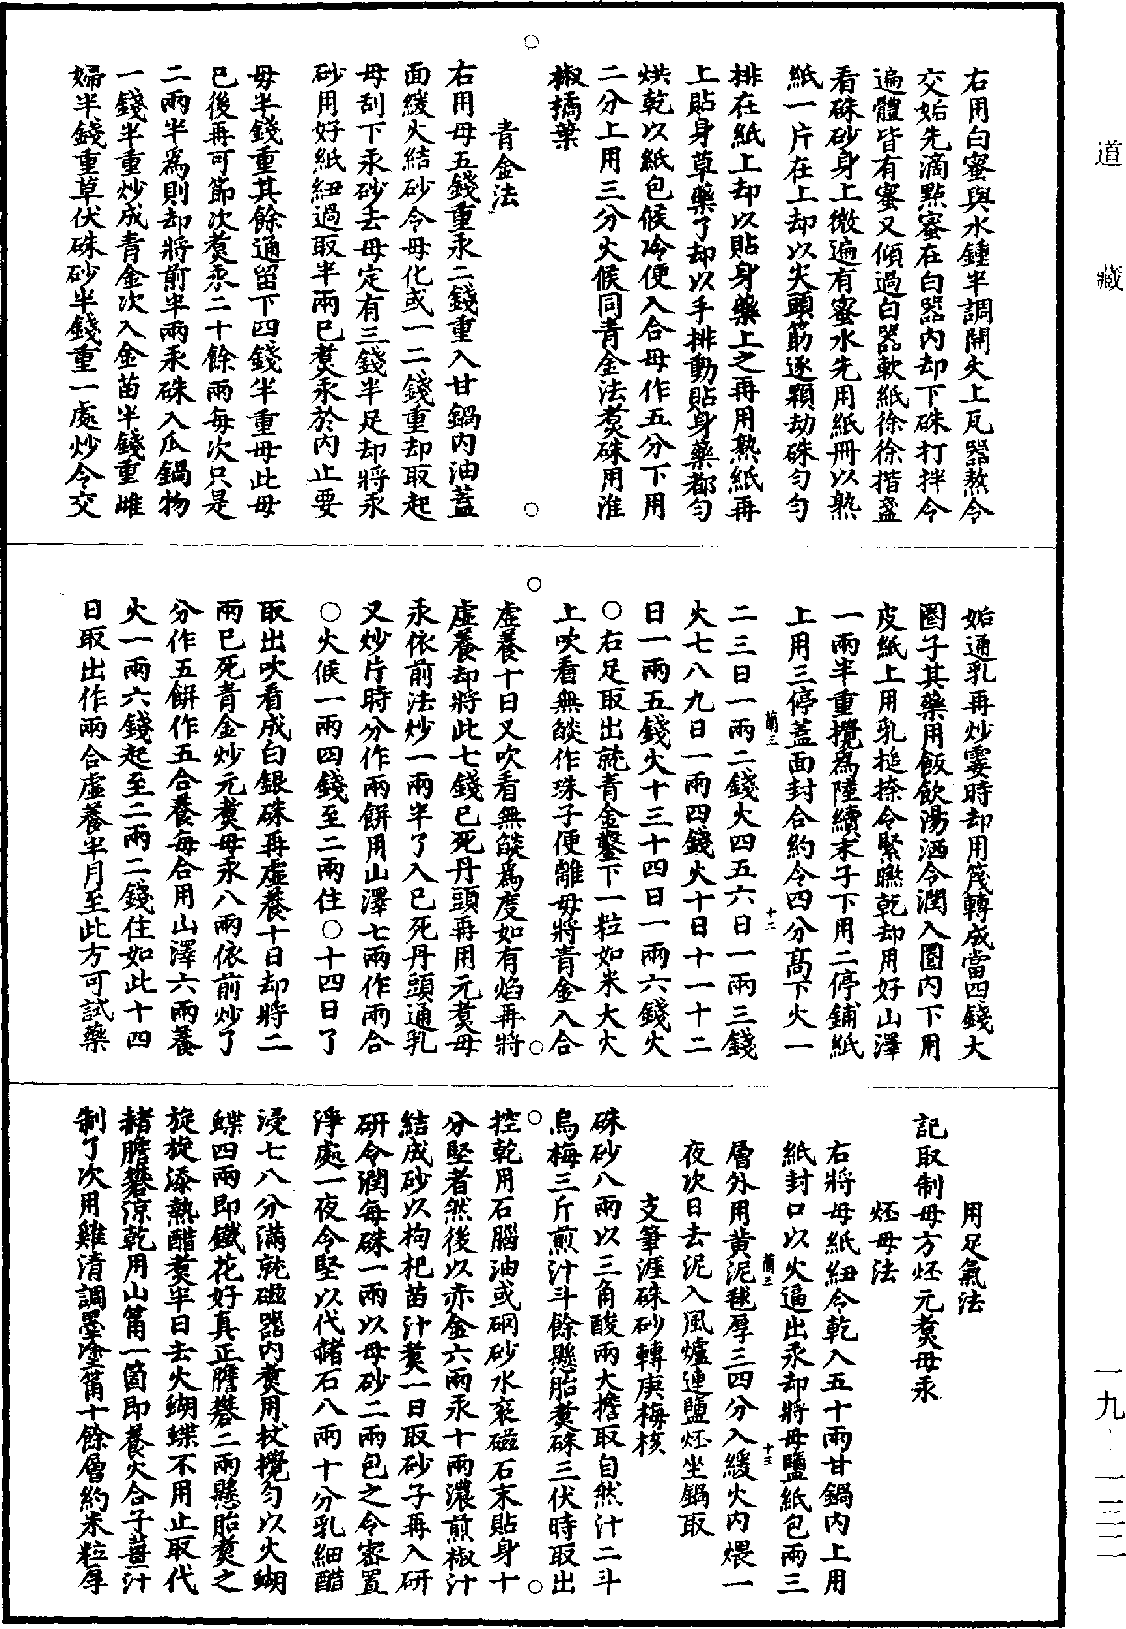 道藏
右用白蜜與水鍾半調開火上瓦器熬令
交姤先滴點蜜在白器內却下硃打拌令
遍體皆有蜜又傾過白器軟紙徐徐揩盞
看硃砂身上微遍有蜜水先用紙冊以熟
紙一片在上却以尖頭筯逐顆劫硃勻勻
排在紙上却以貼身藥上之再用熟紙再
上貼身草藥了却以手排動貼身藥都勻
烘乾以紙包候冷便入合母作五分下用
二分上用三分火候同青金法煑硃用淮
椒橘葉
青金法
右用母五錢重汞二錢重入甘鍋內油蓋
面緩火結砂令母化或一二錢重却取起
母刮下汞砂去母定有三錢半足却將汞
砂用好紙紐過取半兩已煑汞於內止要
母半錢重其餘通留下四錢半重母此母
已後再可節次煑汞二十餘兩每次只是
二兩半爲則却將前半兩汞硃入瓜鍋物
一錢半重炒成青金次入金苗半錢重雌
婦半錢重草伏硃砂半錢重一處炒令交
姤通乳再炒霎時却用篾轉成當四錢大
圈子其藥用飯飲湯洒令潤入圈內下用
皮紙上用乳搥捺令緊㬠乾却用好山澤
一兩半重攪爲陸續末子下用二停鋪紙
上用三停蓋面封合約令四分髙下火一
二三日一兩二錢火四五六日一兩三錢
蘭三 十二
火七八九日一兩四錢火十日十一十二
日一兩五錢火十三十四日一兩六錢火
○右足取出就青金鑿下一粒如米大火
上吹看無燄作珠子便離母將青金入合
虛養十日又吹看無燄爲度如有焰再將
虛養却將此七錢已死丹頭再用元煑母
汞依前法炒一兩半了入已死丹頭通乳
又炒片時分作兩餅用山澤七兩作兩合
○火候一兩四錢至二兩住○十四日了
取出吹看成白銀硃再虛養十日却將二
兩已死青金炒元煑母汞八兩依前炒了
分作五餅作五合養每合用山澤六兩養
火一兩六錢起至二兩二錢住如此十四
日取出作兩合虛養半月至此方可試藥
用足氣法
記取制母方炢元煑母汞
炢母法
右將母紙紐令乾入五十兩甘鍋內上用
紙封口以火逼出汞却將母鹽紙包兩三
蘭三 十三
層外用黄泥毬厚三四分入緩火內煨一
夜次日去泥入風爐連鹽炢坐鍋取
支筆涯硃砂轉庚梅核
硃砂八兩以三角酸兩大擔取自然汁二斗
烏梅三斤煎汁斗餘懸胎煑硃三伏時取出
控乾用石腦油或硇砂水衮磁石末貼身十
分堅者然後以赤金六兩汞十兩濃煎椒汁
結成砂以枸杞苗汁煑一日取砂子再入研
研令潤每硃一兩以母砂二兩包之令密置
淨處一夜令堅以代赭石八兩十分乳細醋
浸七八分滿就磁器內煑用杖攪勻以火蝴
蝶四兩即鐵花好真正膽礬二兩懸胎煑之
旋旋添熱醋煑半日去火蝴蝶不用止取代
赭膽礬涼乾用山䈥一箇即養火合子薑汁
制了次用雞清調墨塗䈥十餘層約米粒厚
一九一三二